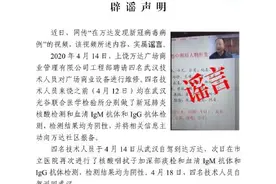 辟谣声明
近日，网传“在万达发现新冠病毒病
例”的视频，该视频所述内容，实属谣言。
2020 年 4 月 14 日，上饶万达广场商
业管理有限公司工程部聘请四名武汉技
术人员对广场商业设备进行维修。四名技
术人员来饶之前（4 月 12 日）均在武汉
光谷联合医学检验所分别做了新冠肺炎
核酸检测和血清 IgM 抗体和 IgG 抗体检
测，检测结果均为阴性，并将相关信息主
动向万达社区报备。
四名技术人员于 4 月 14 日从武汉自驾到达万达，次日在市
立医院再次进行了核酸咽拭子加深部痰检和血清 IgM 抗体和
IgG 抗体检测，检测结果均为阴性。4 月 18 日，四名技术人员自
谣言